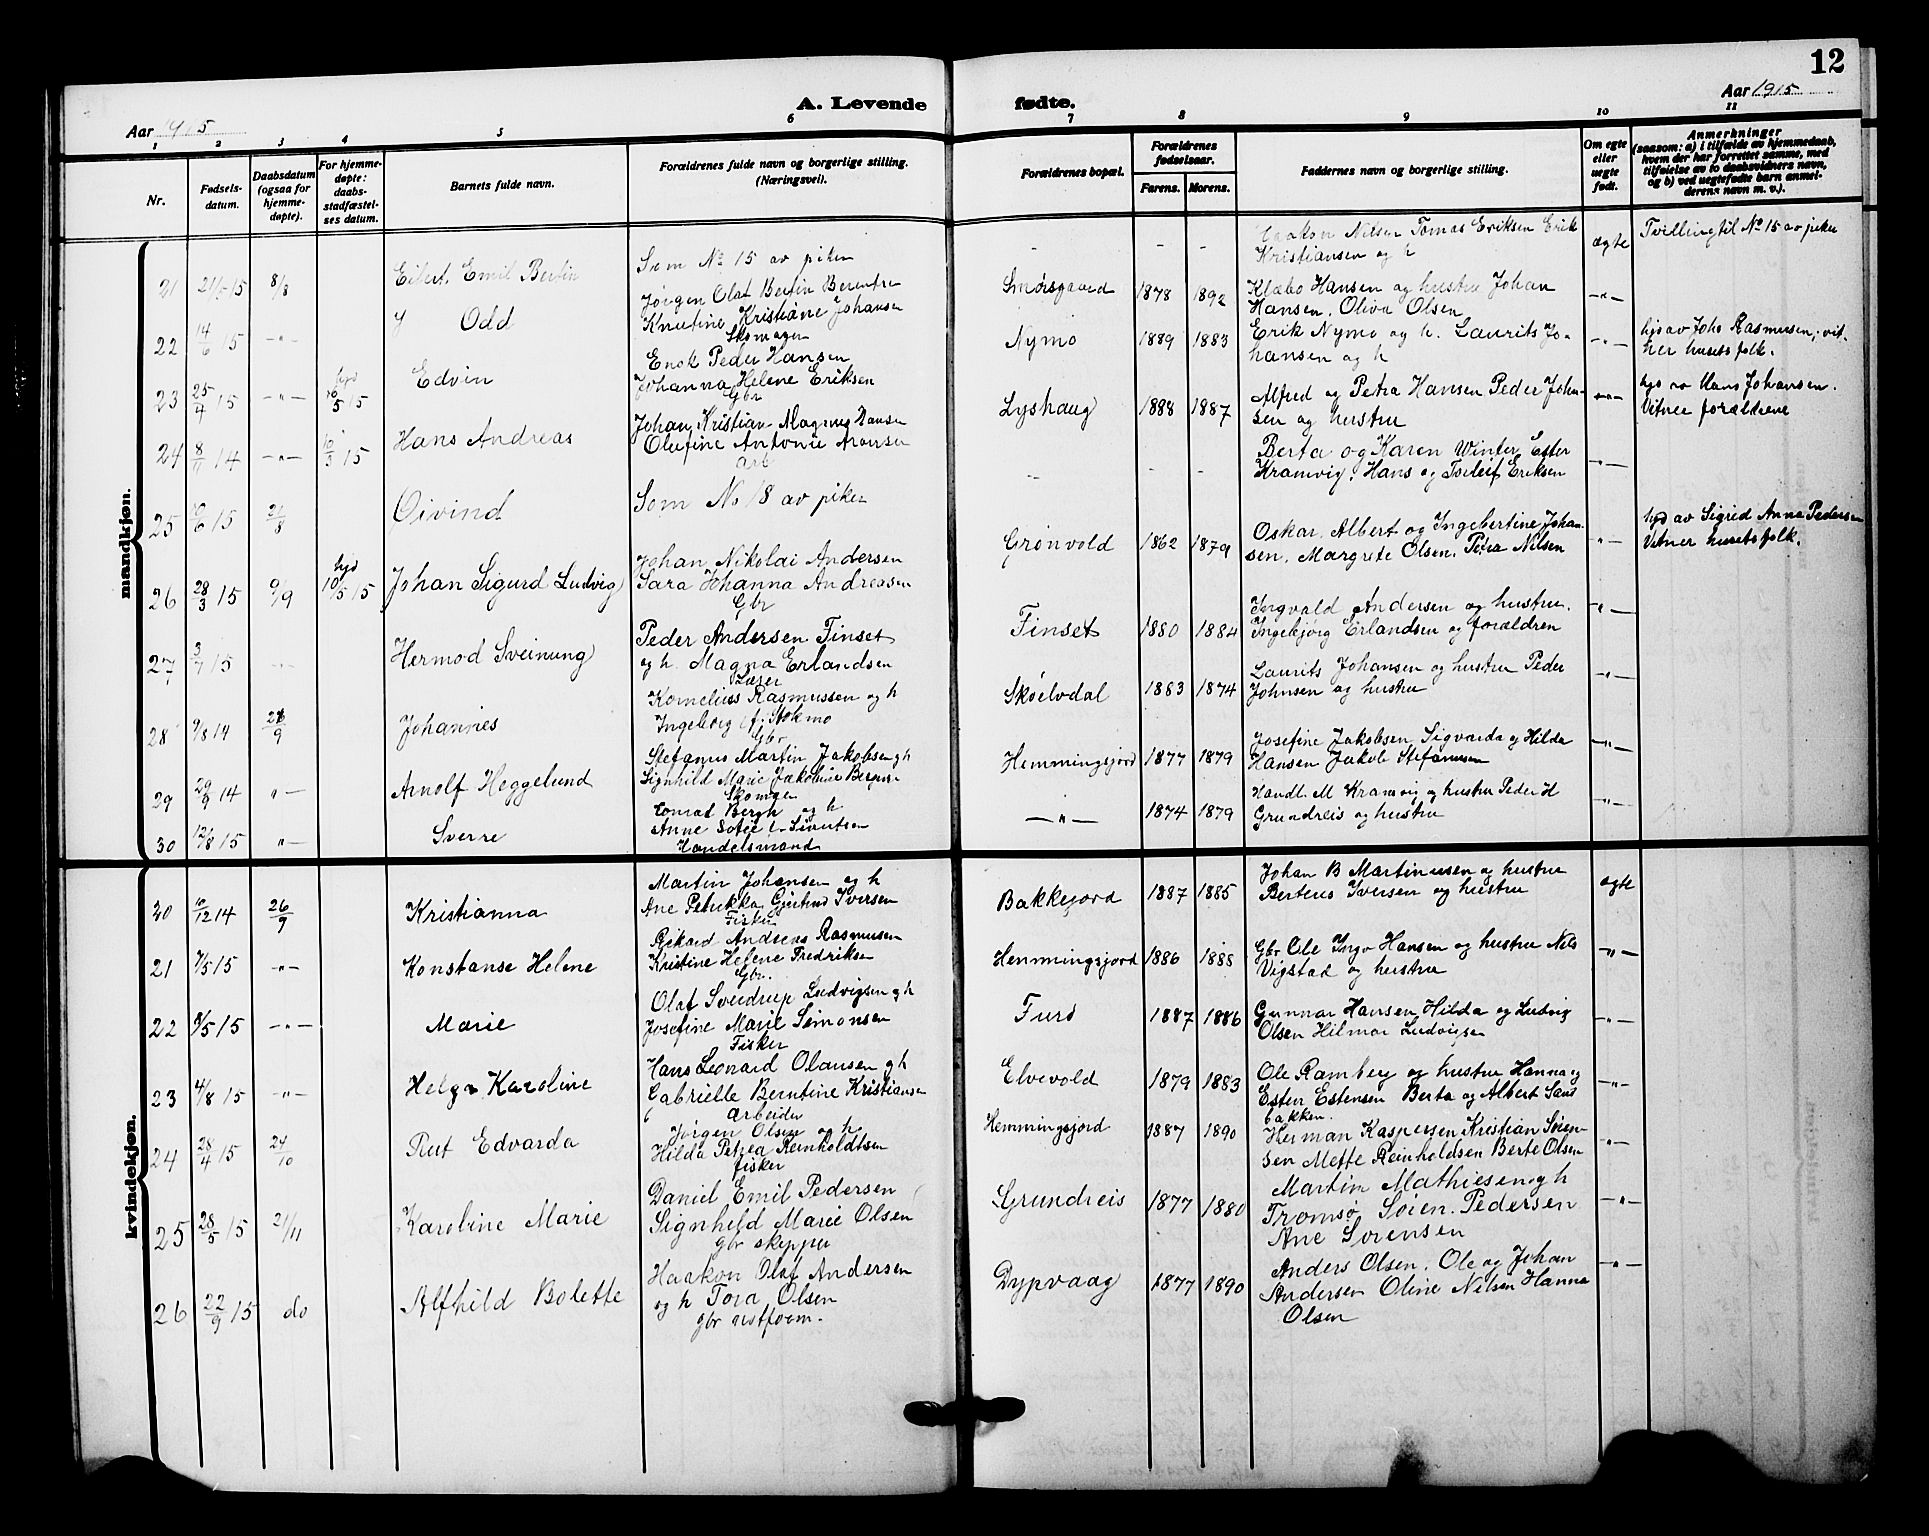 12
A. Levende fødte.
Aar 1915
Aar 1915
1 2 3 4 5 6 7 8 9 10 11
Nr.
Fødsels-
datum.
Daabsdatum
(ogsaa for
hjemme-
døpte).
For hjemme-
døpte:
daabs-
stadfæstel-
ses datum.
Barnets fulde navn.
Forældrenes fulde navn og borgerlige stilling.
(Næringsvei).
Forældrenes bopæl.
Forældrenes
fødselsaar.
Farens. Morens.
Faddernes navn og borgerlige stilling.
Om egte
eller
uegte
født.
Anmerkninger
(saasom: a) i tilfælde av hjemmedaab,
hvem der har forrettet samme, med
tilføielse av to daabsvidners navn,
og b) ved uegtefødte barn anmel-
derens navn m. v.).
mandkjøn.
21 21/5 15 8/8 Eilert Emil Bertin
Som No 15 av piker
- - -
Haakon Nilsen Tomas Eriksen Erik
Kristiansen og h
ægte
Tvilling til No 15 av piker
22 14/6 15 -"- Odd
Jørgen Olaf Bertin Berentsen
Knutine Kristiane Johansen
Skomager
Smørsgaard 1878 1892
Klæbo Hansen og hustru Johan
Hansen, Oliva Olsen
-"-
23 25/4 15 -"- hjd 16/5 15 Edvin
Enok Peder Hansen
Johanna Helene Eriksen
Gbr
Nymo 1889 1883
Erik Nymo og h. Laurits Jo-
hansen og h
-"-
hjd av Johs Rasmussen; vit-
ner husets folk.
24 8/11 14 -"- 10/3 15 Hans Andreas
Johan Kristian Magnus Hansen
Olufine Antonie Aronsen
arb
Lyshaug 1888 1887
Alfred og Petra Hansen Peder Johan-
sen og hustru
-"-
hjd av Hans Johansen.
Vitner forældrene
25 10/6 15 21/8 Oivind
Som No 18 av piker
- - -
Berta og Karen Winter, Ester
Kramvig, Hans og Torleif Eriksen
-"-
26 28/3 15 9/9 hjd 10/5 15 Johan Sigurd Ludvig
Johan Nikolai Andersen
Sara Johanna Andreasen
Gbr
Grønvold 1862 1879
Oskar, Albert og Ingebertine Johan-
sen, Margrete Olsen, Petra Nilsen
-"-
hjd av Sigrid Anna Pedersen
Vitner husets folk.
27 3/7 15 -"- Hermod Sveinung
Peder Andersen Finset
og h. Magna Erlandsen
Lærer
Finset 1880 1884
Ingvald Andersen og hustru.
Ingebjørg Erlandsen og forældren
-"-
28 9/8 14 26/9 Johannes
Kornelius Rasmussen og h
Ingeborg f. Stokmo
Gbr
Skøelvdal 1883 1874
Laurits Johansen og hustru Peder
Johnsen og hustru
-"-
29 29/9 14 "- Arnolf Heggelund
Stefanus Martin Jakobsen og h
Signhild Marie Jakobine Bergersen
Skomager
Hemmingsjord 1877 1879
Josefine Jakobsen Sigvarda og Hilda
Hansen Jakob Stefanusen
-"-
30 12/8 15 "- Sverre
Konrad Bergh og h
Anne Sofie f. Sivertsen
Handelsmand
-"- 1874 1879
Handl. M Kramvig og hustru Peder H
Grundreis og hustru
-"-
kvindekjøn.
20 10/12 14 26/9 Kristianna
Martin Johansen og h
Ane Petrikka Gjertrud Iversen
Fisker
Bakkejord 1887 1885
Johan B Martinusen og hustru
Berteus Iversen og hustru
ægte
21 7/5 15 -"- Konstanse Helene
Rikard Andreas Rasmusen
Kristine Helene Fredriksen
Gbr.
Hemmingsjord 1886 1888
Gbr Ole Ingv Hansen og hustru Nils
Vigstad og hustru
-"-
22 8/5 15 -"- Marie
Olaf Sverdrup Ludvigsen og h
Josefine Marie Simonsen
Fisker
Furø 1887 1886
Gunnar Hansen Hilda og Ludvig
Olsen Hilmar Ludvigsen
-"-
23 4/8 15 -"- Helga Karoline
Hans Leonard Olausen og h
Gabrielle Berntine Kristiansen
Arbeider
Elvevold 1879 1883
Ole Ramberg og hustru Hanna og
Ester Estensen Berta og Albert Sand
bakken.
-"-
24 28/4 15 24/10 Rut Edvarda
Jørgen Olsen og h
Hilda Petrea Reinholdtsen
fisker
Hemmingsjord 1887 1890
Herman Kaspersen Kristian Sören-
sen Mette Reinholdsen Berte Olsen
-"-
25 28/5 15 21/11 Karoline Marie
Daniel Emil Pedersen
Signhild Marie Olsen
gbr skipper
Grundreis 1877 1880
Martin Mathiesen og h
Tromsø Søren Pedersen
Ane Sorensen
-"-
26 22/9 15 do Alfhild Bolette
Haakon Olaf Andersen
og h Tora Olsen
gbr
Dypvaag 1877 1890
Anders Olsen, Ole og Johan
Andersen Oline Nilsen Hanna
Olsen
-"-